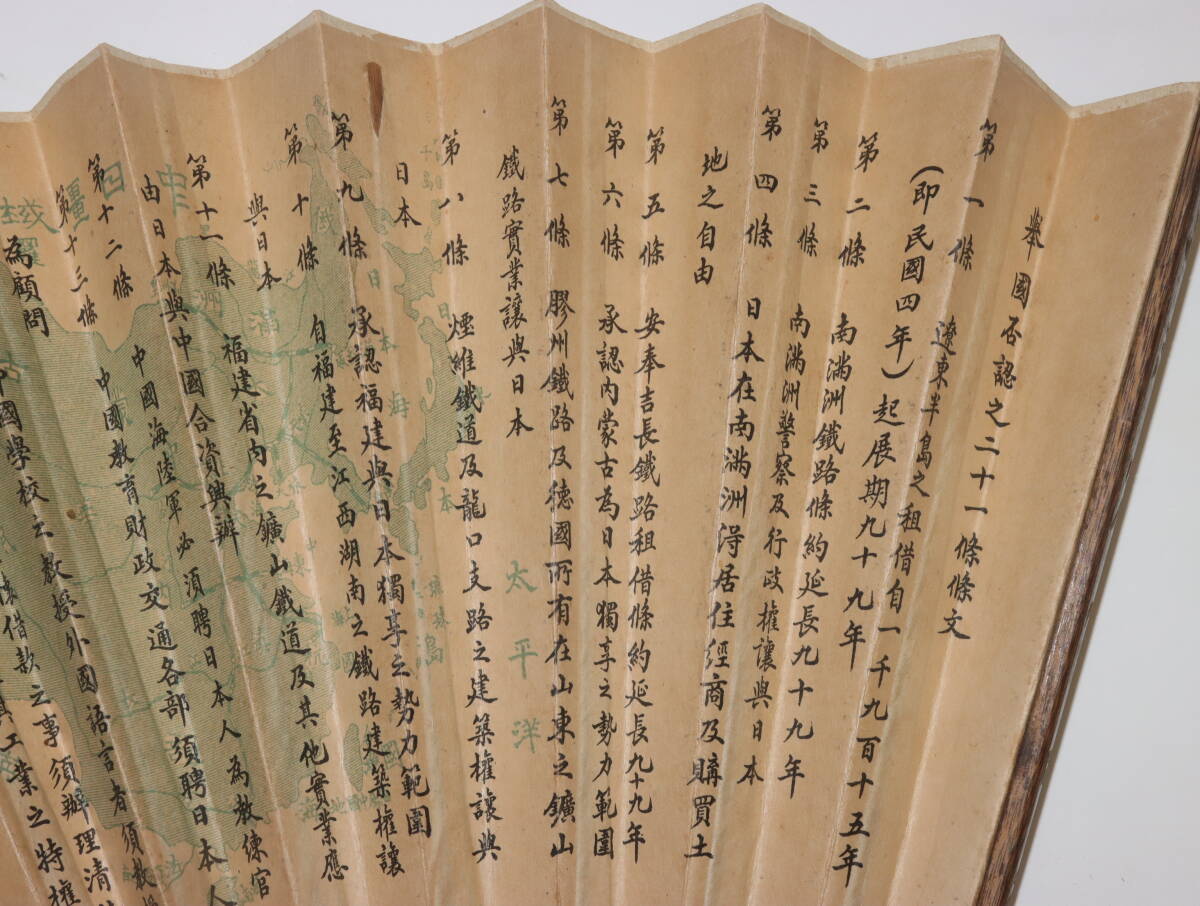 舉國否認之二十一條條文
第一條 遼東半島之租借自一千九百十五年
(即民國四年)起展期九十九年
第二條 南滿洲鐵路條約延長九十九年
第三條 南滿洲警察及行政權讓與日本
第四條 日本在南滿洲得居住經商及購買土
地之自由
第五條 安奉吉長鐵路租借條約延長九十九年
第六條 承認內蒙古為日本獨享之勢力範圍
第七條 膠州鐵路及德國所有在山東之鑛山
鐵路實業讓與日本
第八條 煙維鐵道及龍口支路之建築權讓與
日本
第九條 承認福建與日本獨享之勢力範圍
第十條 自福建至江西湖南之鐵路建築權讓
與日本
第十一條 福建省內之鑛山鐵道及其他實業應
由日本與中國合資興辦
第十二條 中國海陸軍必須聘日本人為教練官
第十三條 中國教育財政交通各部須聘日本人
為顧問
中國學校之教授外國語言者須教
借款之事須辦理清
工業之特權
太平洋
日本海
日本
琉球
島
滿洲
中日
疆